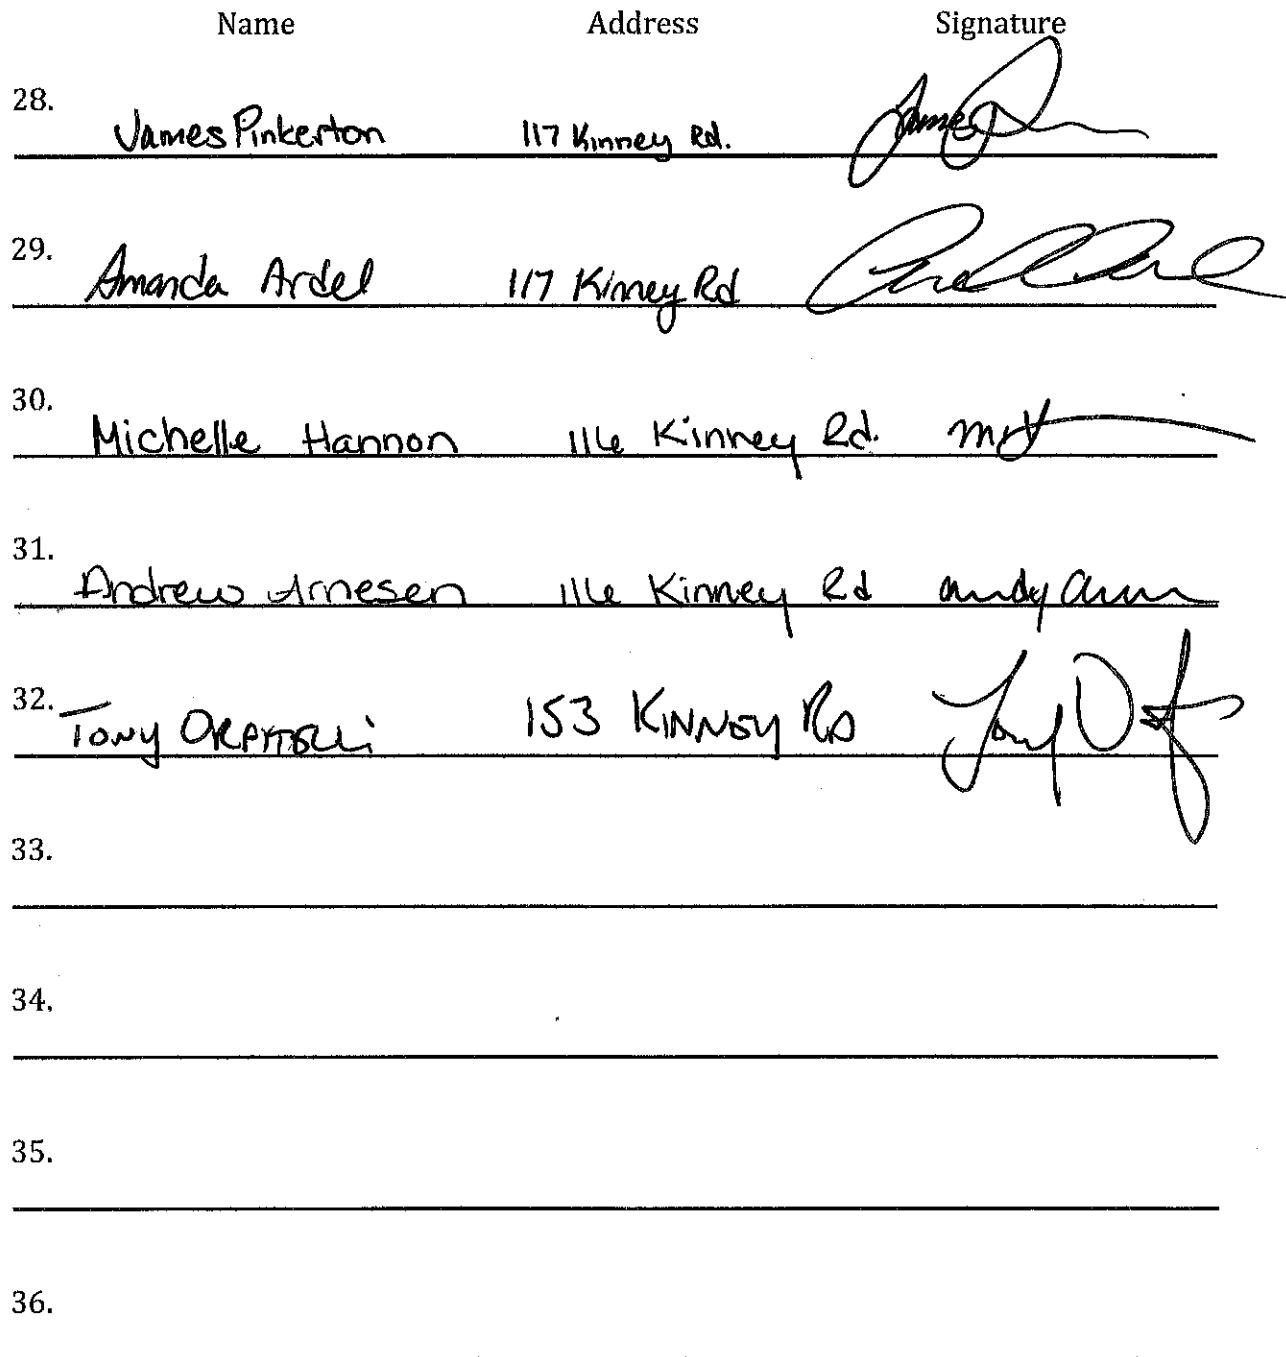 Name Address Signature
28. James Pinkerton 117 Kinney Rd. James
29. Amanda Ardel 117 Kinney Rd
30. Michelle Hannon 116 Kinney Rd. MH
31. Andrew Arnesen 116 Kinney Rd andy
32. Tony 153 KINNEY RD Tony
33.
34.
35.
36.